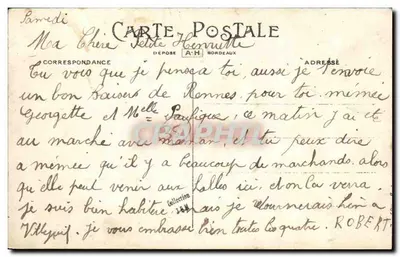 Samedi
CARTE POSTALE
Ma Chère Petite Henriette
DÉPOSÉ A-H BORDEAUX
CORRESPONDANCE ADRESSE
Tu vois que je pense a toi, aussi je t'envoie
un bon baisers de Rennes pour toi mémée
Georgette et Melle ce matin j'ai et
au marché avec maman, et tu peux dire
a mémée qu'il y a beaucoup de marchands, alors
qu'elle peut venir aux halles ici, et on la verra.
je suis bien habitué mais je retournerais bien a
Villejuif. je vous embrasse bien toutes les quatre. ROBERT
Collection